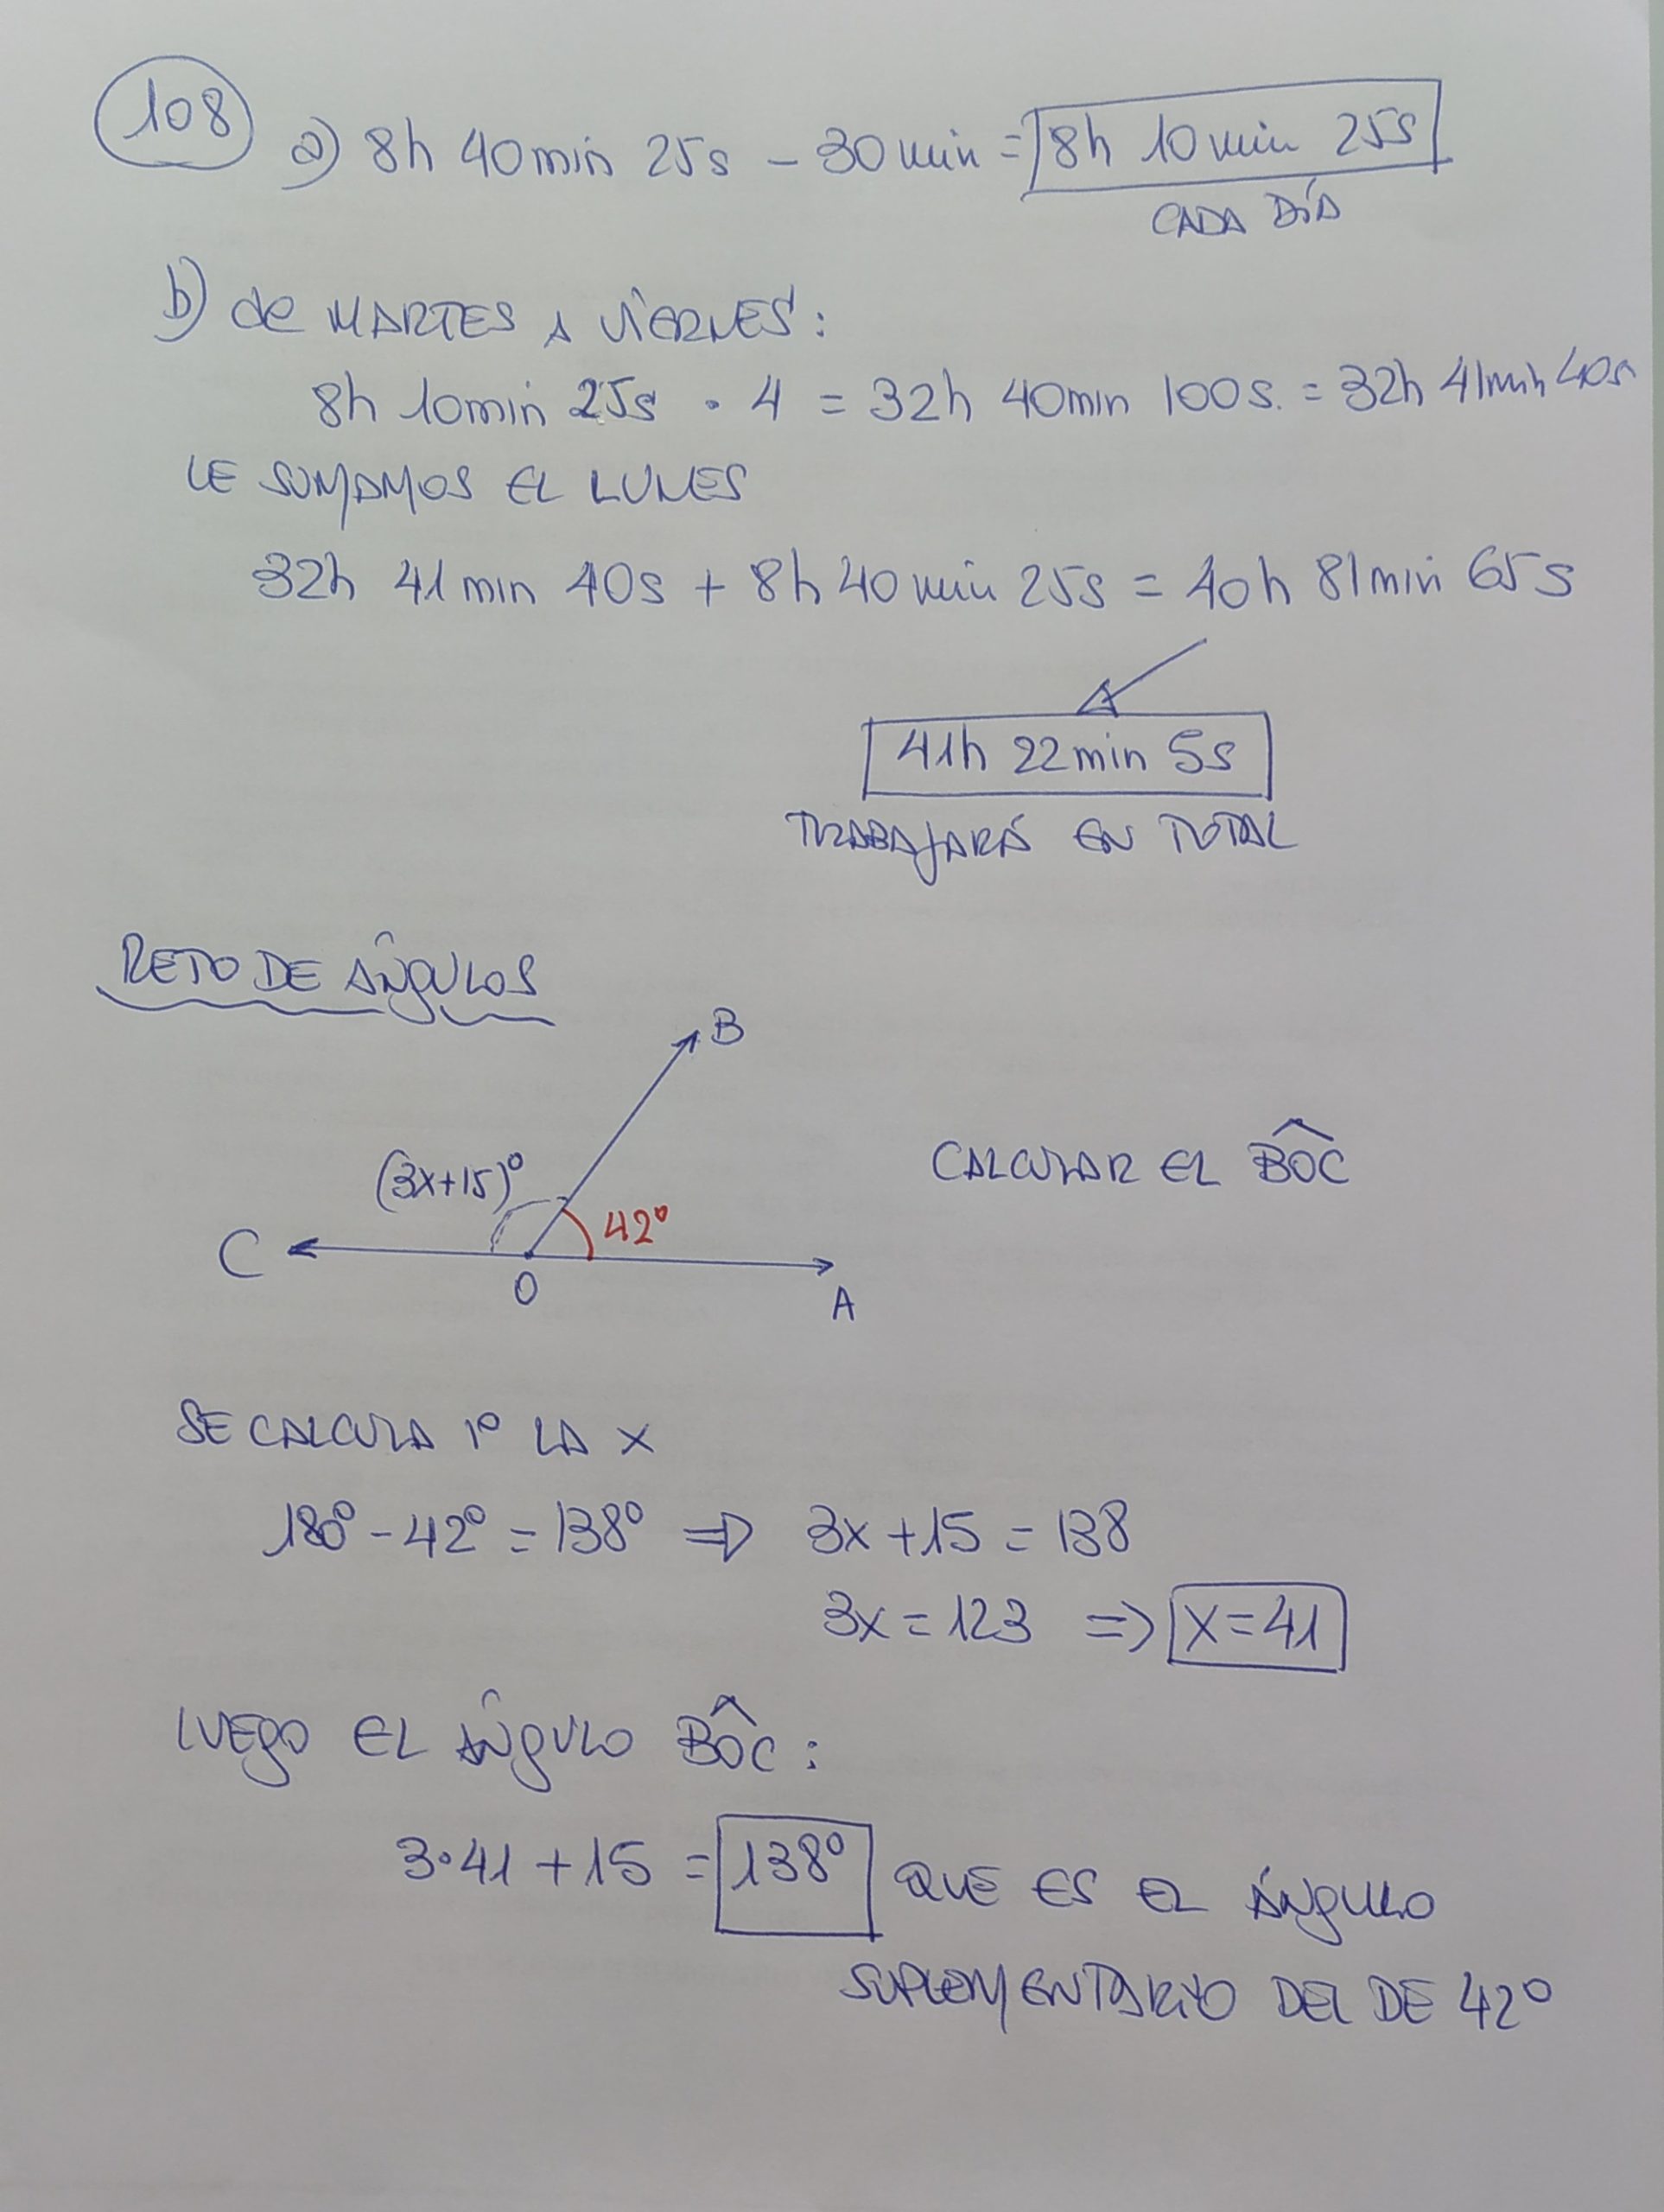 108
a) 8h 40min 25s - 30min = 8h 10min 25s
CADA DÍA
b) de MARTES A VIERNES:
8h 10min 25s · 4 = 32h 40min 100s. = 32h 41min 40s
LE SUMAMOS EL LUNES
32h 41min 40s + 8h 40min 25s = 40h 81min 65s
41h 22min 5s
TRABAJARÁ EN TOTAL
RETO DE ÂNGULOS
B
(3x+15)°
42°
C
O
A
CALCULAR EL BÔC
SE CALCULA 1º LA X
180° - 42° = 138° ⇒ 3x + 15 = 138
3x = 123 ⇒ X = 41
LUEGO EL ÂNGULO BÔC:
3·41 + 15 = 138° QUE ES EL ÁNGULO
SUPLEMENTARIO DEL DE 42°